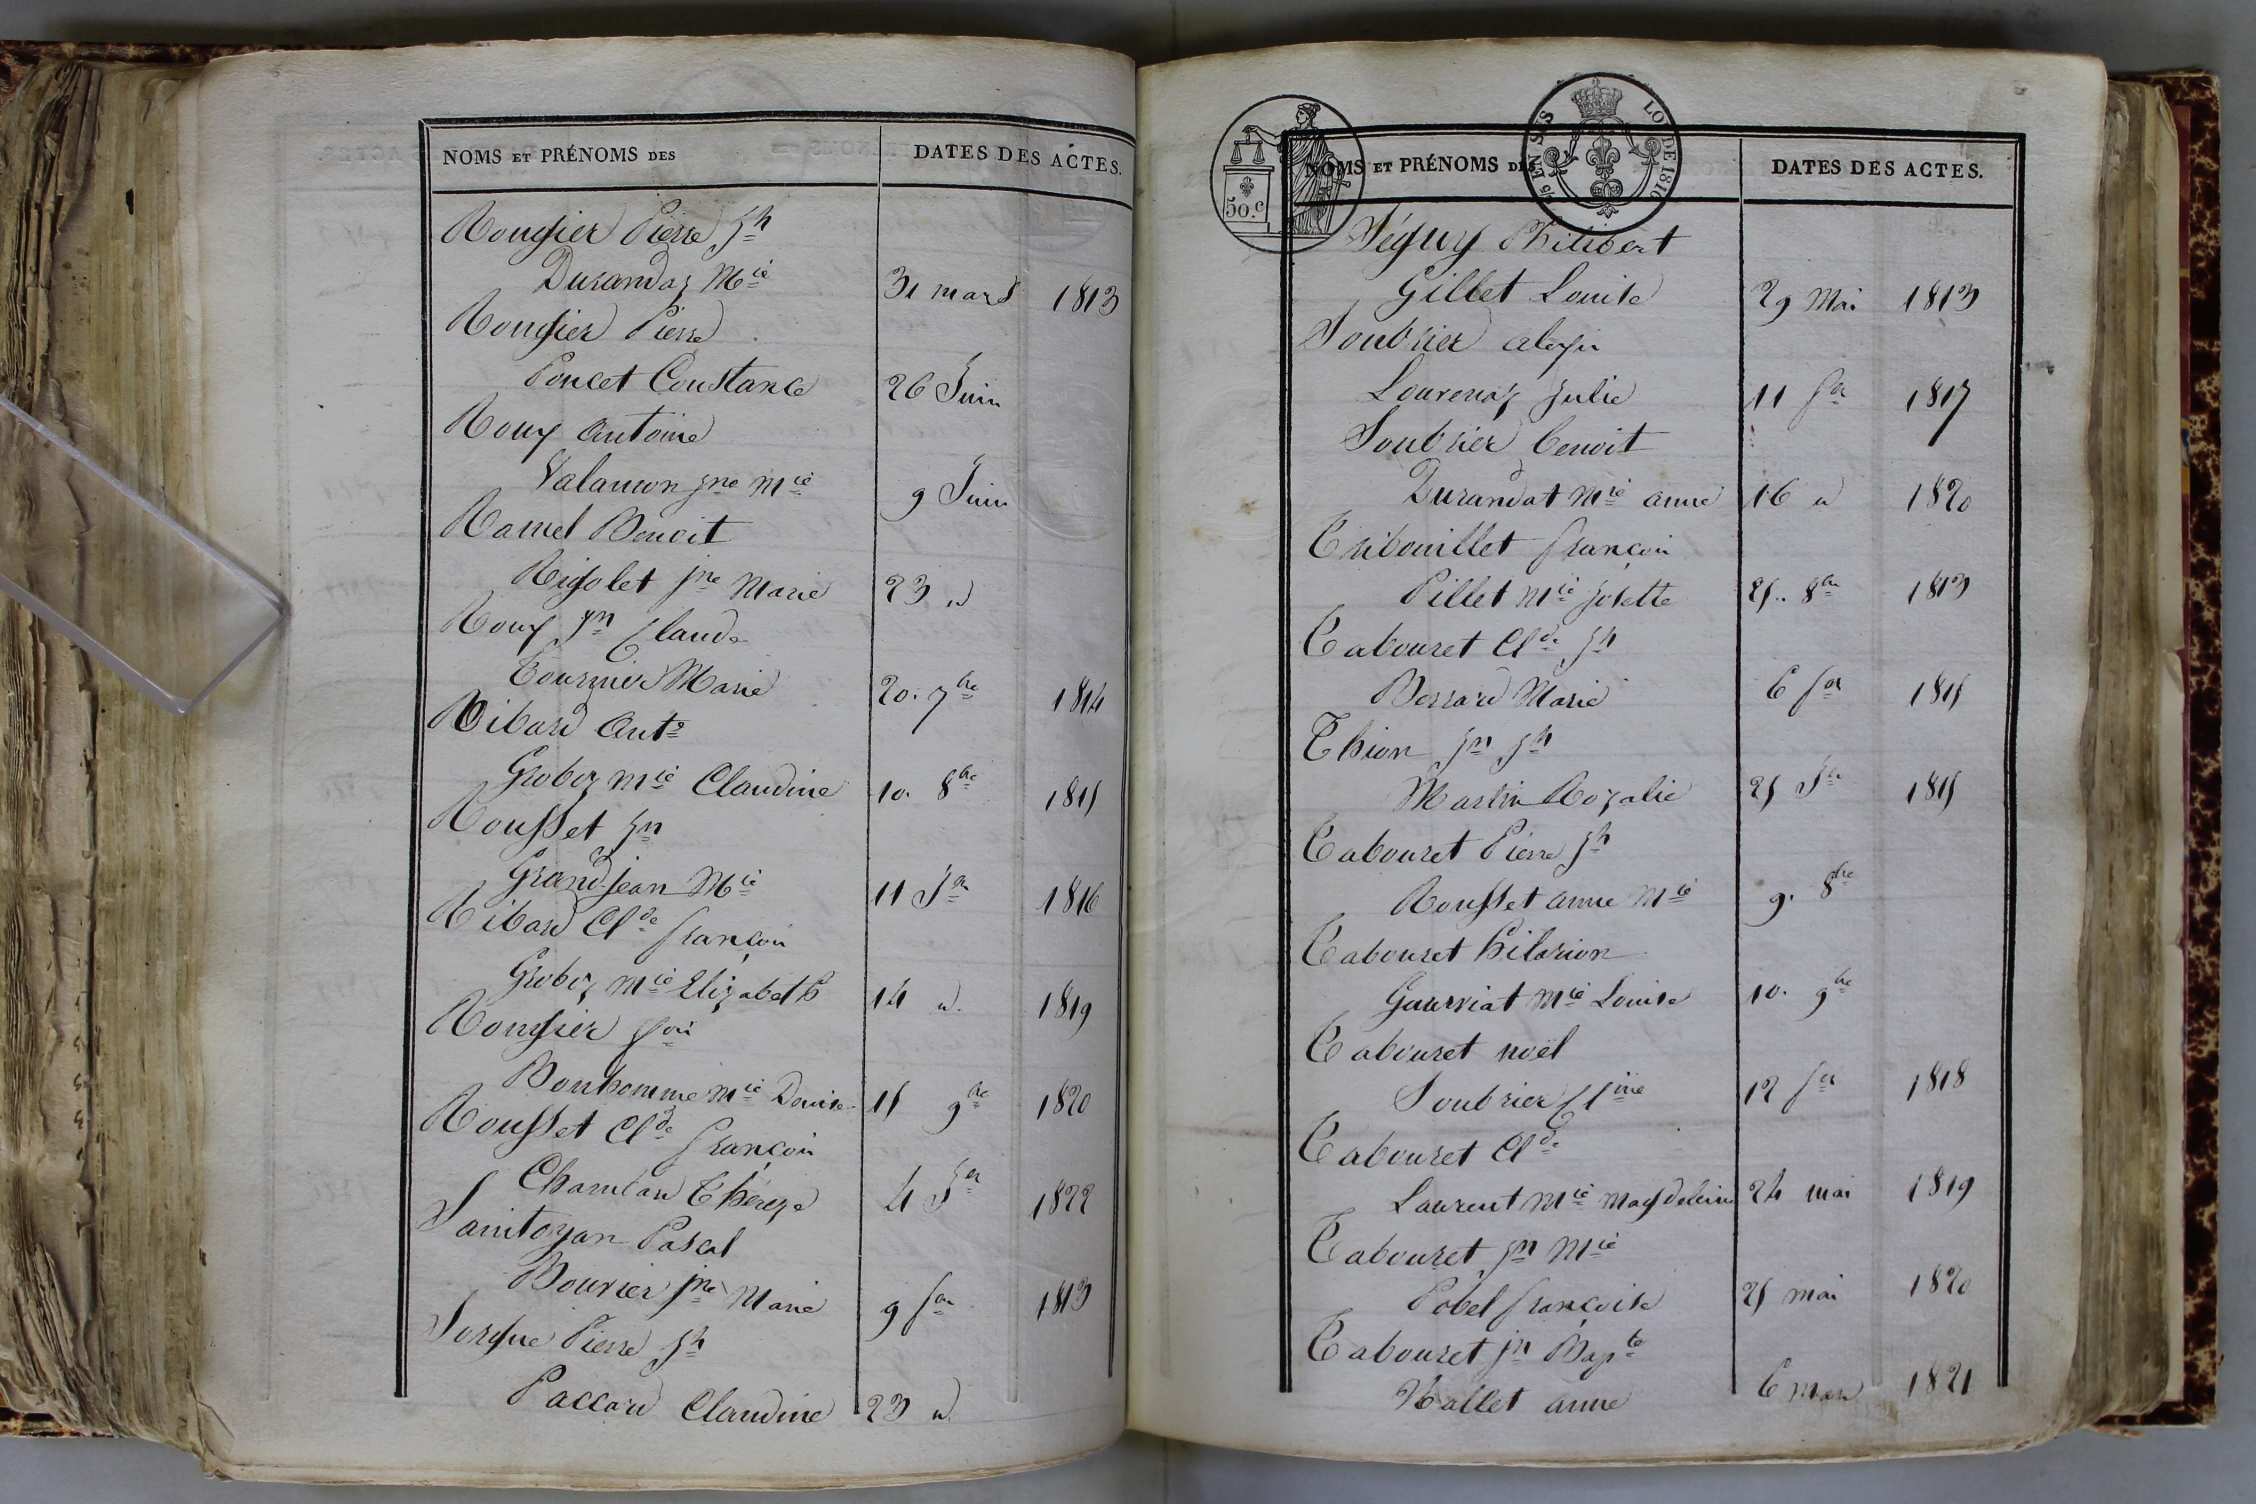 NOMS ET PRÉNOMS DES DATES DES ACTES.
Rougier Pierre Jh
Durandaz Mie 31 mars 1813
Rougier Pierre
Poncet Constance 26 Juin
Roux Antoine
Valanson jne Mie 9 Juin
Ramel Benoit
Rigolet jne Marie 23 id
Roux Jn Claude
Tournier Marie 20. 7bre 1814
Ribard Ante
Groboz Mie Claudine 10. 8bre 1815
Rousset Jn
Grandjean Mie 11 Jer 1816
Ribard Clde françois
Groboz Mie Elizabeth 14 id. 1819
Rougier foix
Bonhomme Mie Denise 15 9bre 1820
Rousset Clde françois
Thérèze 4 Jer 1822
Saintoyan Pascal
Bouvier jne Marie 9 fer 1813
Sorgue Pierre Jh
Paccard Claudine 23 id
50.c
LOI DE 1816
EN SUS
NOMS ET PRÉNOMS DES DATES DES ACTES.
Séguy Philibert
Gillet Louise 29 Mai 1813
Soubrier alexis
Lourenaz Julie 11 fer 1817
Soubrier benoit
Durandat Mie anne 16 id 1820
Tribouillet françois
Pillet Mie Josette 25.. 8bre 1813
Tabouret Clde Jh
Berrard Marie 6 fer 1815
Thion Jn Jh
Martin Rozalie 25 Jer 1815
Tabouret Pierre Jh
Rousset anne Mie 9. 8bre
Tabouret hilarion
Mie Louise 10. 9bre
Tabouret noël
Soubrier 12 fer 1818
Tabouret Clde
Laurent Mie Magdeleine 24 mai 1819
Tabouret Jn Mie
Pobel françoise 25 mai 1820
Tabouret jn Bapte
Vallet anne 6 mars 1821